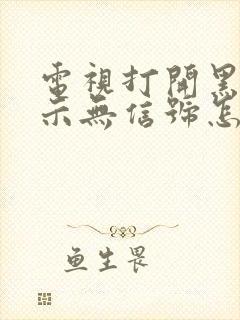 電視打開黑
示無信號怎
魚生畏